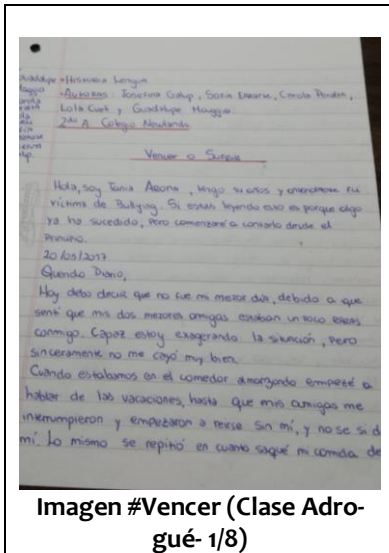 Historia Lengua
Autoras: Josefina Galup, Sofia , Carola ,
Lola y Guadalupe Maggio
2do A Colegio Newlands
Vencer o
Hola, soy Tania , tengo años y
víctima de Bullying. Si estas leyendo esto es porque algo
ya ha sucedido, pero comenzaré a contarlo desde el
Principio.
20/05/2017
Querido Diario,
Hoy debo decir que no fue mi mejor día, debido a que
sentí que mis dos mejores amigas estaban un toco
conmigo. Capaz estoy exagerando la situación, pero
sinceramente no me cayó muy bien.
Cuando estabamos en el comedor almorzando empezé a
hablar de las vacaciones, hasta que mis amigas me
interrumpieron y empezaron a reirse sin mí, y no se si d
mí. Lo mismo se repitió en cuanto saqué mi comida de
Imagen #Vencer (Clase Adro-
gué- 1/8)